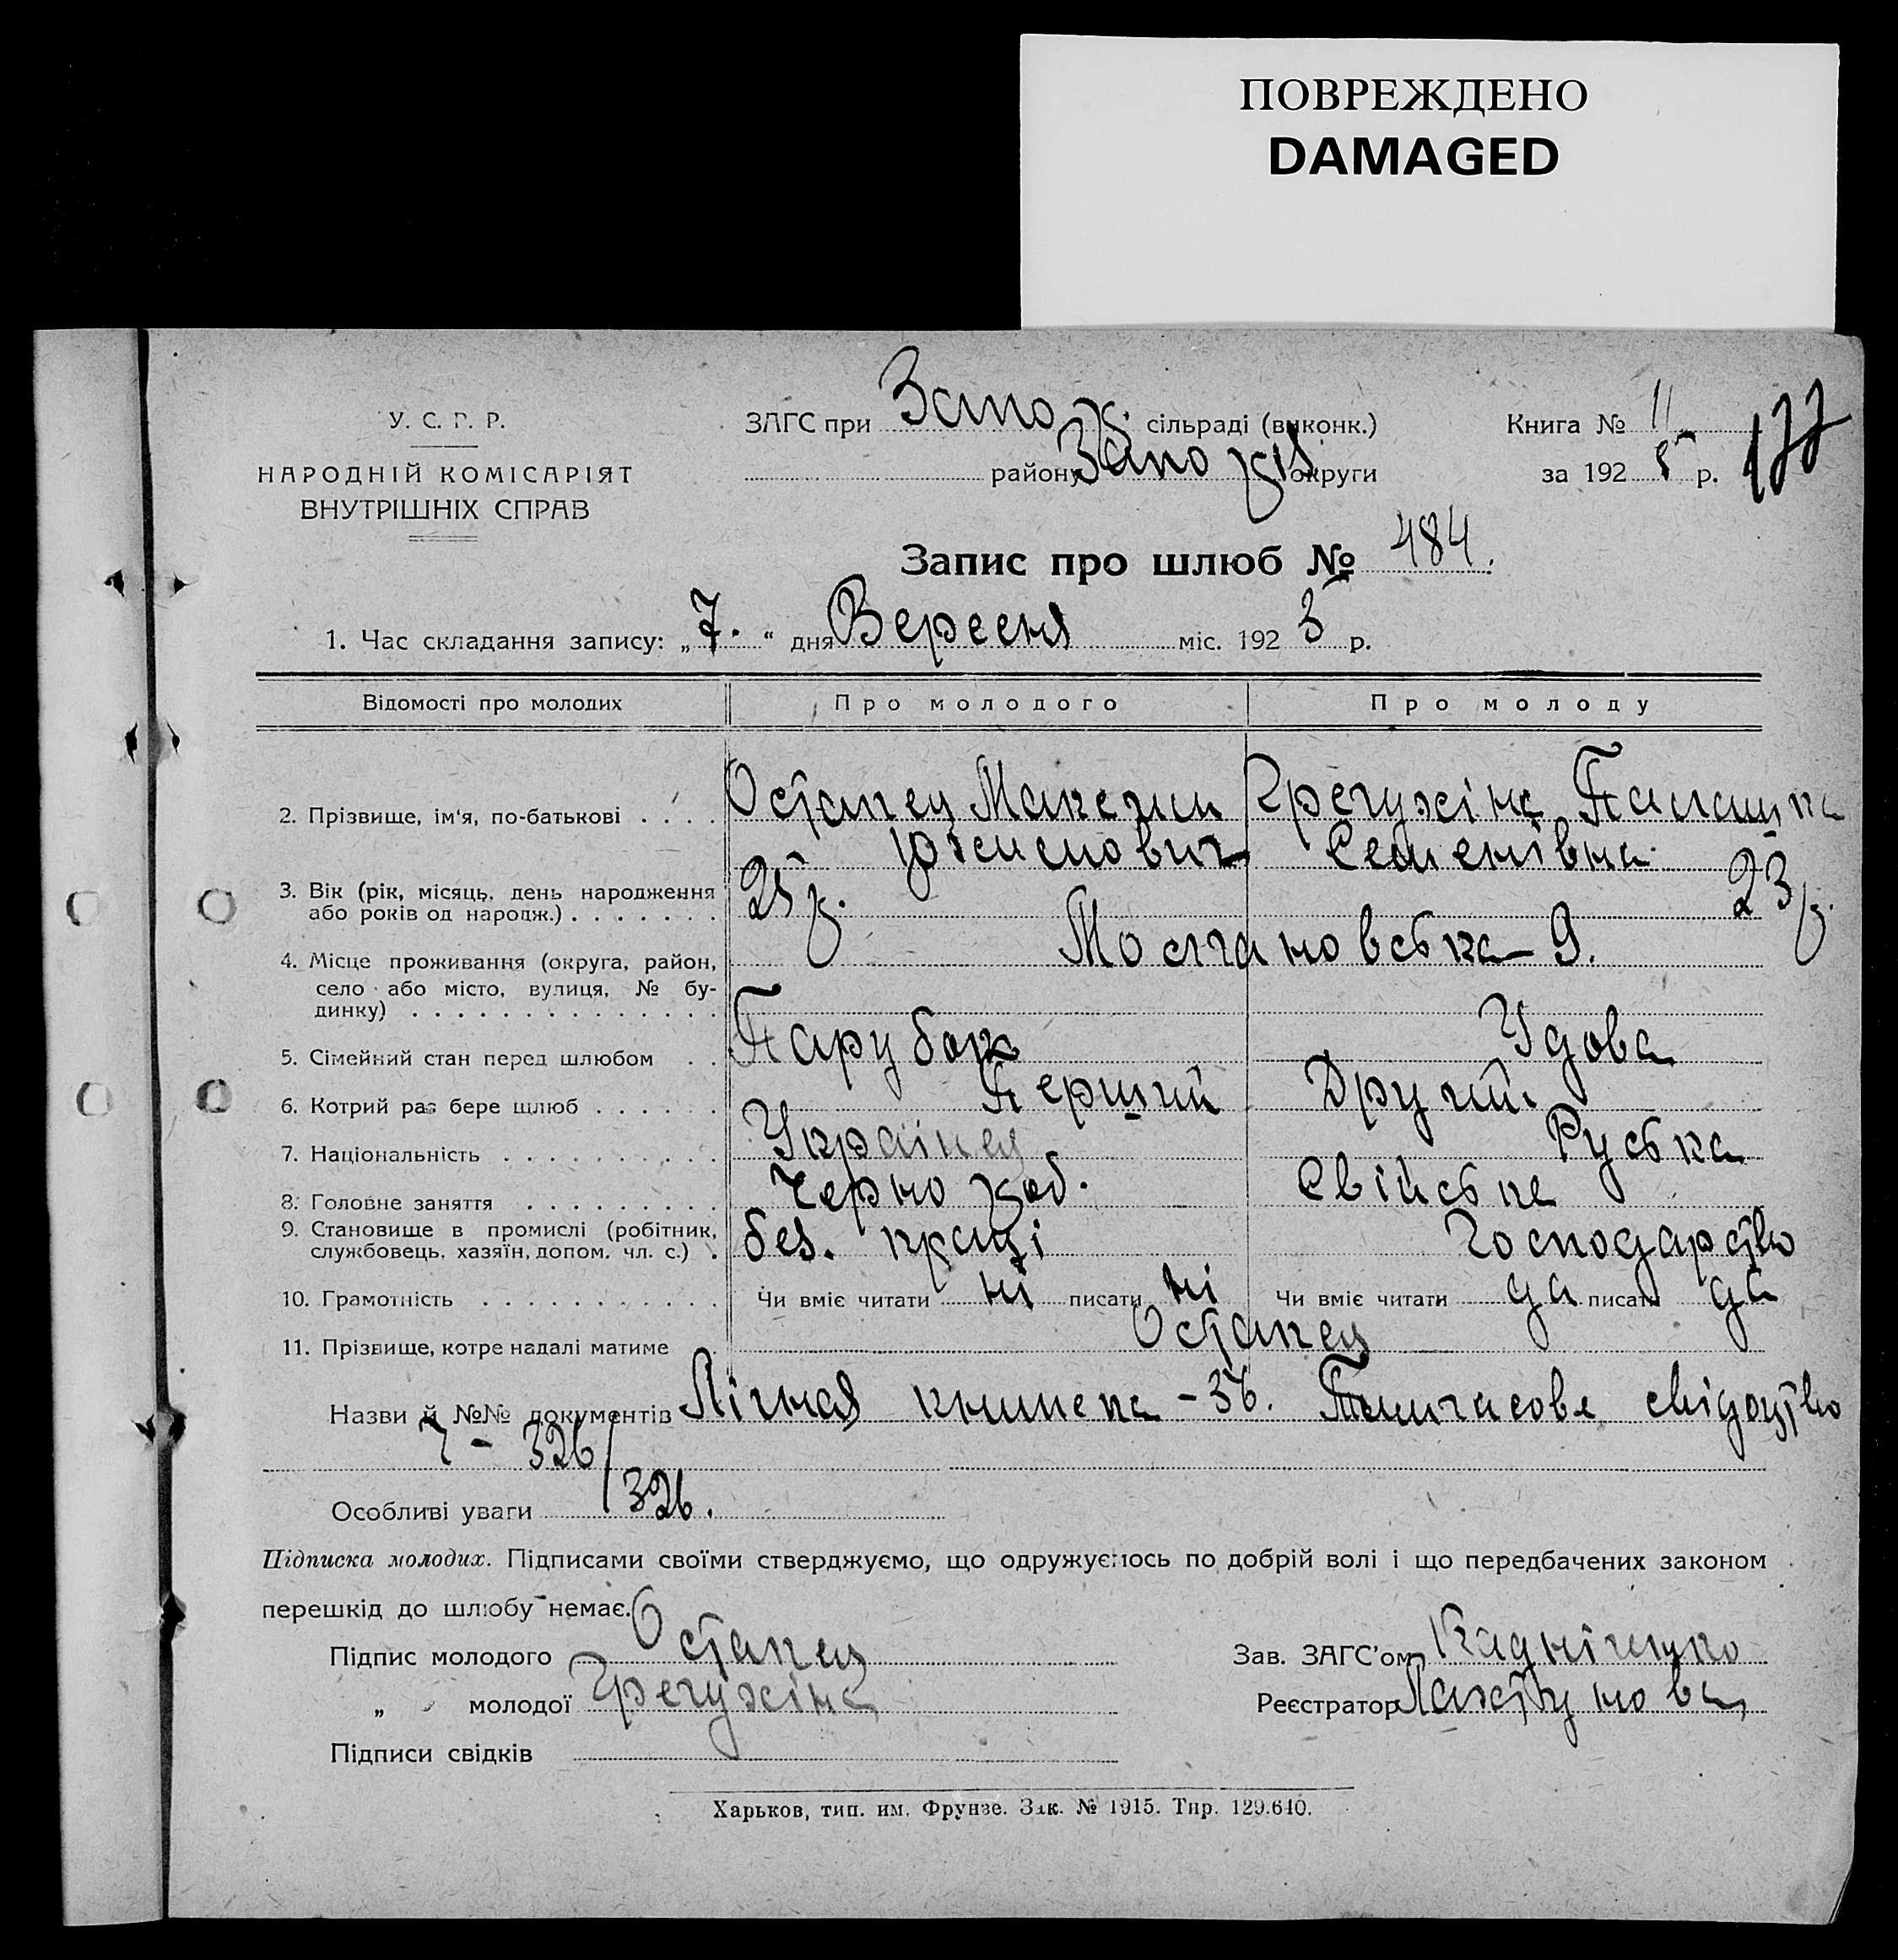 ПОВРЕЖДЕНО
DAMAGED
У. С. Р. Р.
НАРОДНІЙ КОМІСАРІЯТ
ВНУТРІШНІХ СПРАВ
ЗАГС при Запож. сільраді (виконк.)
району Запоріз. округи
Книга № 11
за 192 5 р.
177
Запис про шлюб № 484.
1. Час складання запису: „ 7. “ дня Вересня міс. 192 5 р.
Відомості про молодих Про молодого Про молоду
2. Прізвище, ім'я, по-батькові . . . . Остапец Максим Грегужіна Палашка
Юхимович Семенівна.
3. Вік (рік, місяць, день народження 25 р. 23 р.
або років од народж.) . . . . . . .
4. Місце проживання (округа, район, Молчановська – 9.
село або місто, вулиця, № бу-
динку) . . . . . . . . . . . . . .
5. Сімейний стан перед шлюбом . . Парубок Удова
6. Котрий раз бере шлюб . . . . . . Перший Другий.
7. Національність . . . . . . . . . . Українец Руська
8. Головне заняття . . . . . . . . . Черно роб. Свійське
9. Становище в промислі (робітник,
службовець, хазяїн, допом. чл. с.) . без. праці Господарство
10. Грамотність . . . . . . . . . . . Чи вміє читати ні писати ні Чи вміє читати да писати да
11. Прізвище, котре надалі матиме Остапец
Назви й №№ документів Лічная книжека – 36. Тимчасове свідоцтво
7 – 326/
Особливі уваги 326.
Підписка молодих. Підписами своїми стверджуємо, що одружуємось по добрій волі і що передбачених законом
перешкід до шлюбу немає.
Підпис молодого Остапец
Зав. ЗАГС'ом
„ молодої Грегужіна
Реєстратор
Підписи свідків
Харьков, тип. им. Фрунзе. Зак. № 1915. Тир. 129.640.